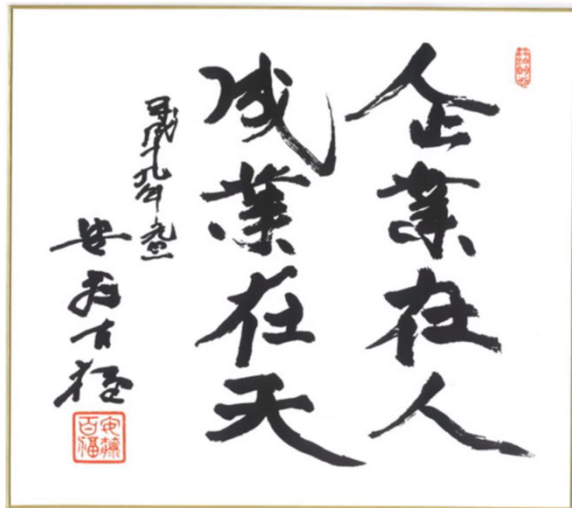 企業在人
成業在天
平成十九年 元旦
安藤百福
安藤百福